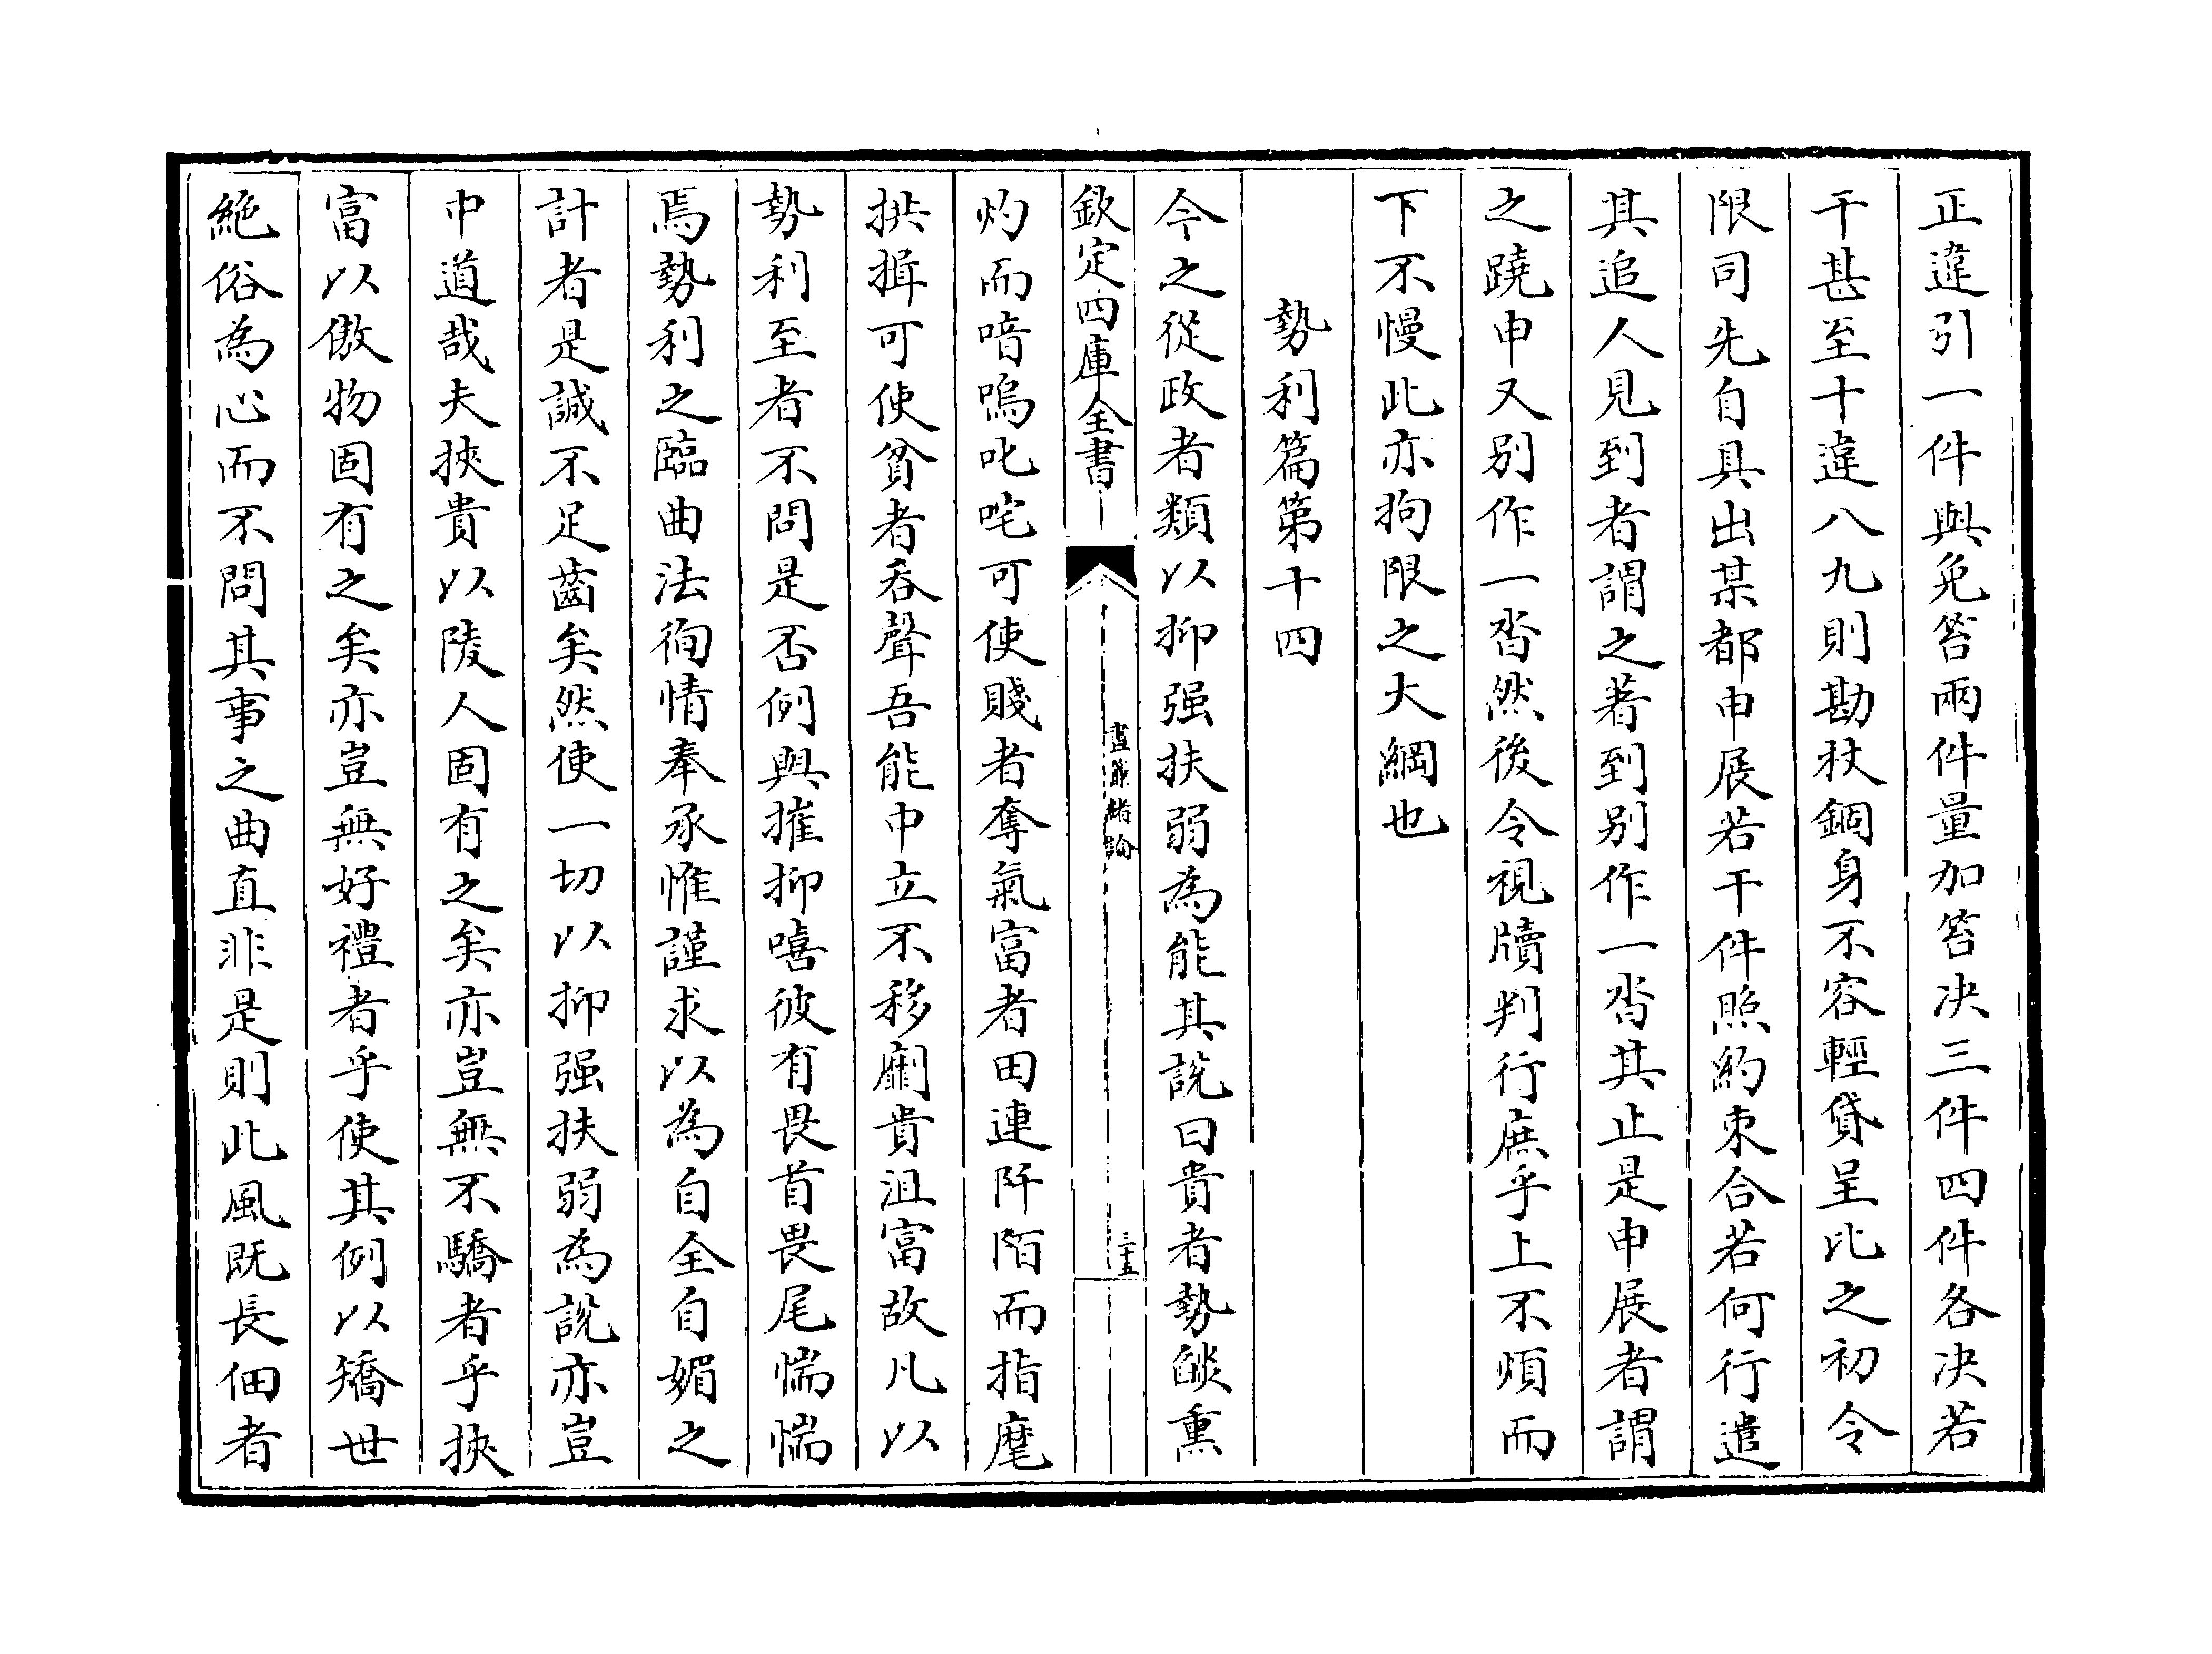 正違引一件與免笞兩件量加笞决三件四件各决若
干甚至十違八九則勘杖錮身不容輕貸呈比之初令
限司先自具出某都申展若干件照約束合若何行遣
其追人見到者謂之著到别作一沓其止是申展者謂
之蹺申又别作一沓然後令視牘判行庶乎上不煩而
下不慢此亦拘限之大綱也
勢利篇第十四
今之從政者類以抑强扶弱為能其説曰貴者勢燄熏
欽定四庫全書
晝簾緒論
三十五
灼而喑嗚叱咤可使賤者奪氣富者田連阡陌而指麾
拱揖可使貧者吞聲吾能中立不移劘貴沮富故凡以
勢利至者不問是否例與摧抑嘻彼有畏首畏尾惴惴
焉勢利之臨曲法徇情奉承惟謹求以為自全自媚之
計者是誠不足齒矣然使一切以抑强扶弱為説亦豈
中道哉夫挾貴以陵人固有之矣亦豈無不驕者乎挾
富以傲物固有之矣亦豈無好禮者乎使其例以矯世
絶俗為心而不問其事之曲直非是則此風既長佃者